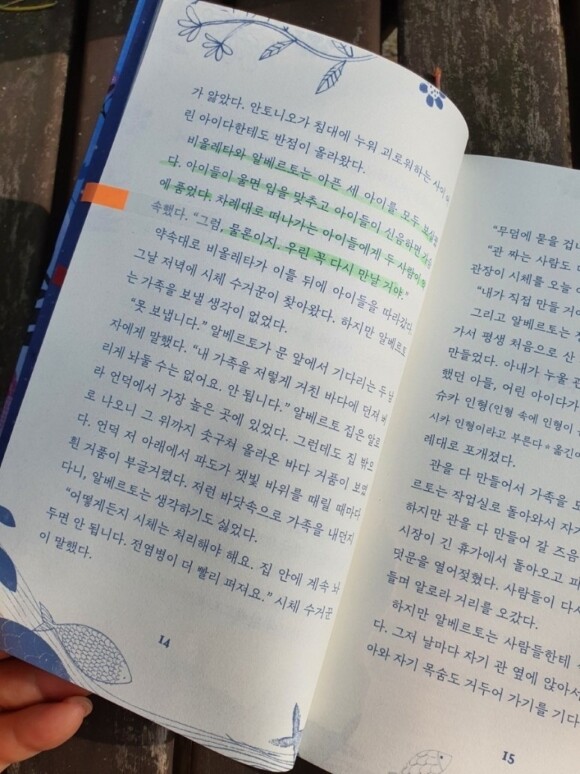 가 앓았다. 안토니오가 침대에 누워 괴로워하는 사이
린 아이다한테도 반점이 올라왔다.
비올레타와 알베르토는 아픈 세 아이를 모두
다. 아이들이 울면 입을 맞추고 아이들이 신음하면
에 품었다. 차례대로 떠나가는 아이들에게 두 사람이
속했다. “그럼, 물론이지. 우린 꼭 다시 만날 거야.”
약속대로 비올레타가 이틀 뒤에 아이들을 따라갔다.
그날 저녁에 시체 수거꾼이 찾아왔다. 하지만 알베르토
는 가족을 보낼 생각이 없었다.
“못 보냅니다.” 알베르토가 문 앞에서 기다리는 두 남
자에게 말했다. “내 가족을 저렇게 거친 바다에 던져 버
리게 놔둘 수는 없어요. 안 됩니다.” 알베르토 집은 알로
라 언덕에서 가장 높은 곳에 있었다. 그런데도 집 밖으
로 나오니 그 위까지 솟구쳐 올라온 바다 거품이 보였
다. 언덕 저 아래에서 파도가 잿빛 바위를 때릴 때마다
흰 거품이 부글거렸다. 저런 바닷속으로 가족을 내던지
다니, 알베르토는 생각하기도 싫었다.
“어떻게든지 시체는 처리해야 해요. 집 안에 계속 놔
두면 안 됩니다. 전염병이 더 빨리 퍼져요.” 시체 수거꾼
이 말했다.
14
“무덤에 묻을 겁
“관 짜는 사람도
관장이 시체를 오늘
“내가 직접 만들 거
그리고 알베르토는
가서 평생 처음으로 산
만들었다. 아내가 누울
했던 아들, 어린 아이다가
슈카 인형(인형 속에 인형이
시카 인형이라고 부른다*옮긴
레대로 포개졌다.
관을 다 만들어서 가족을
르토는 작업실로 돌아와서 자기
하지만 관을 다 만들어 갈 즈음
시장이 긴 휴가에서 돌아오고
덧문을 열어젖혔다. 사람들이 다시
들며 알로라 거리를 오갔다.
하지만 알베르토는 사람들한테
다. 그저 날마다 자기 관 옆에 앉아서
아와 자기 목숨도 거두어 가기를 기다
15